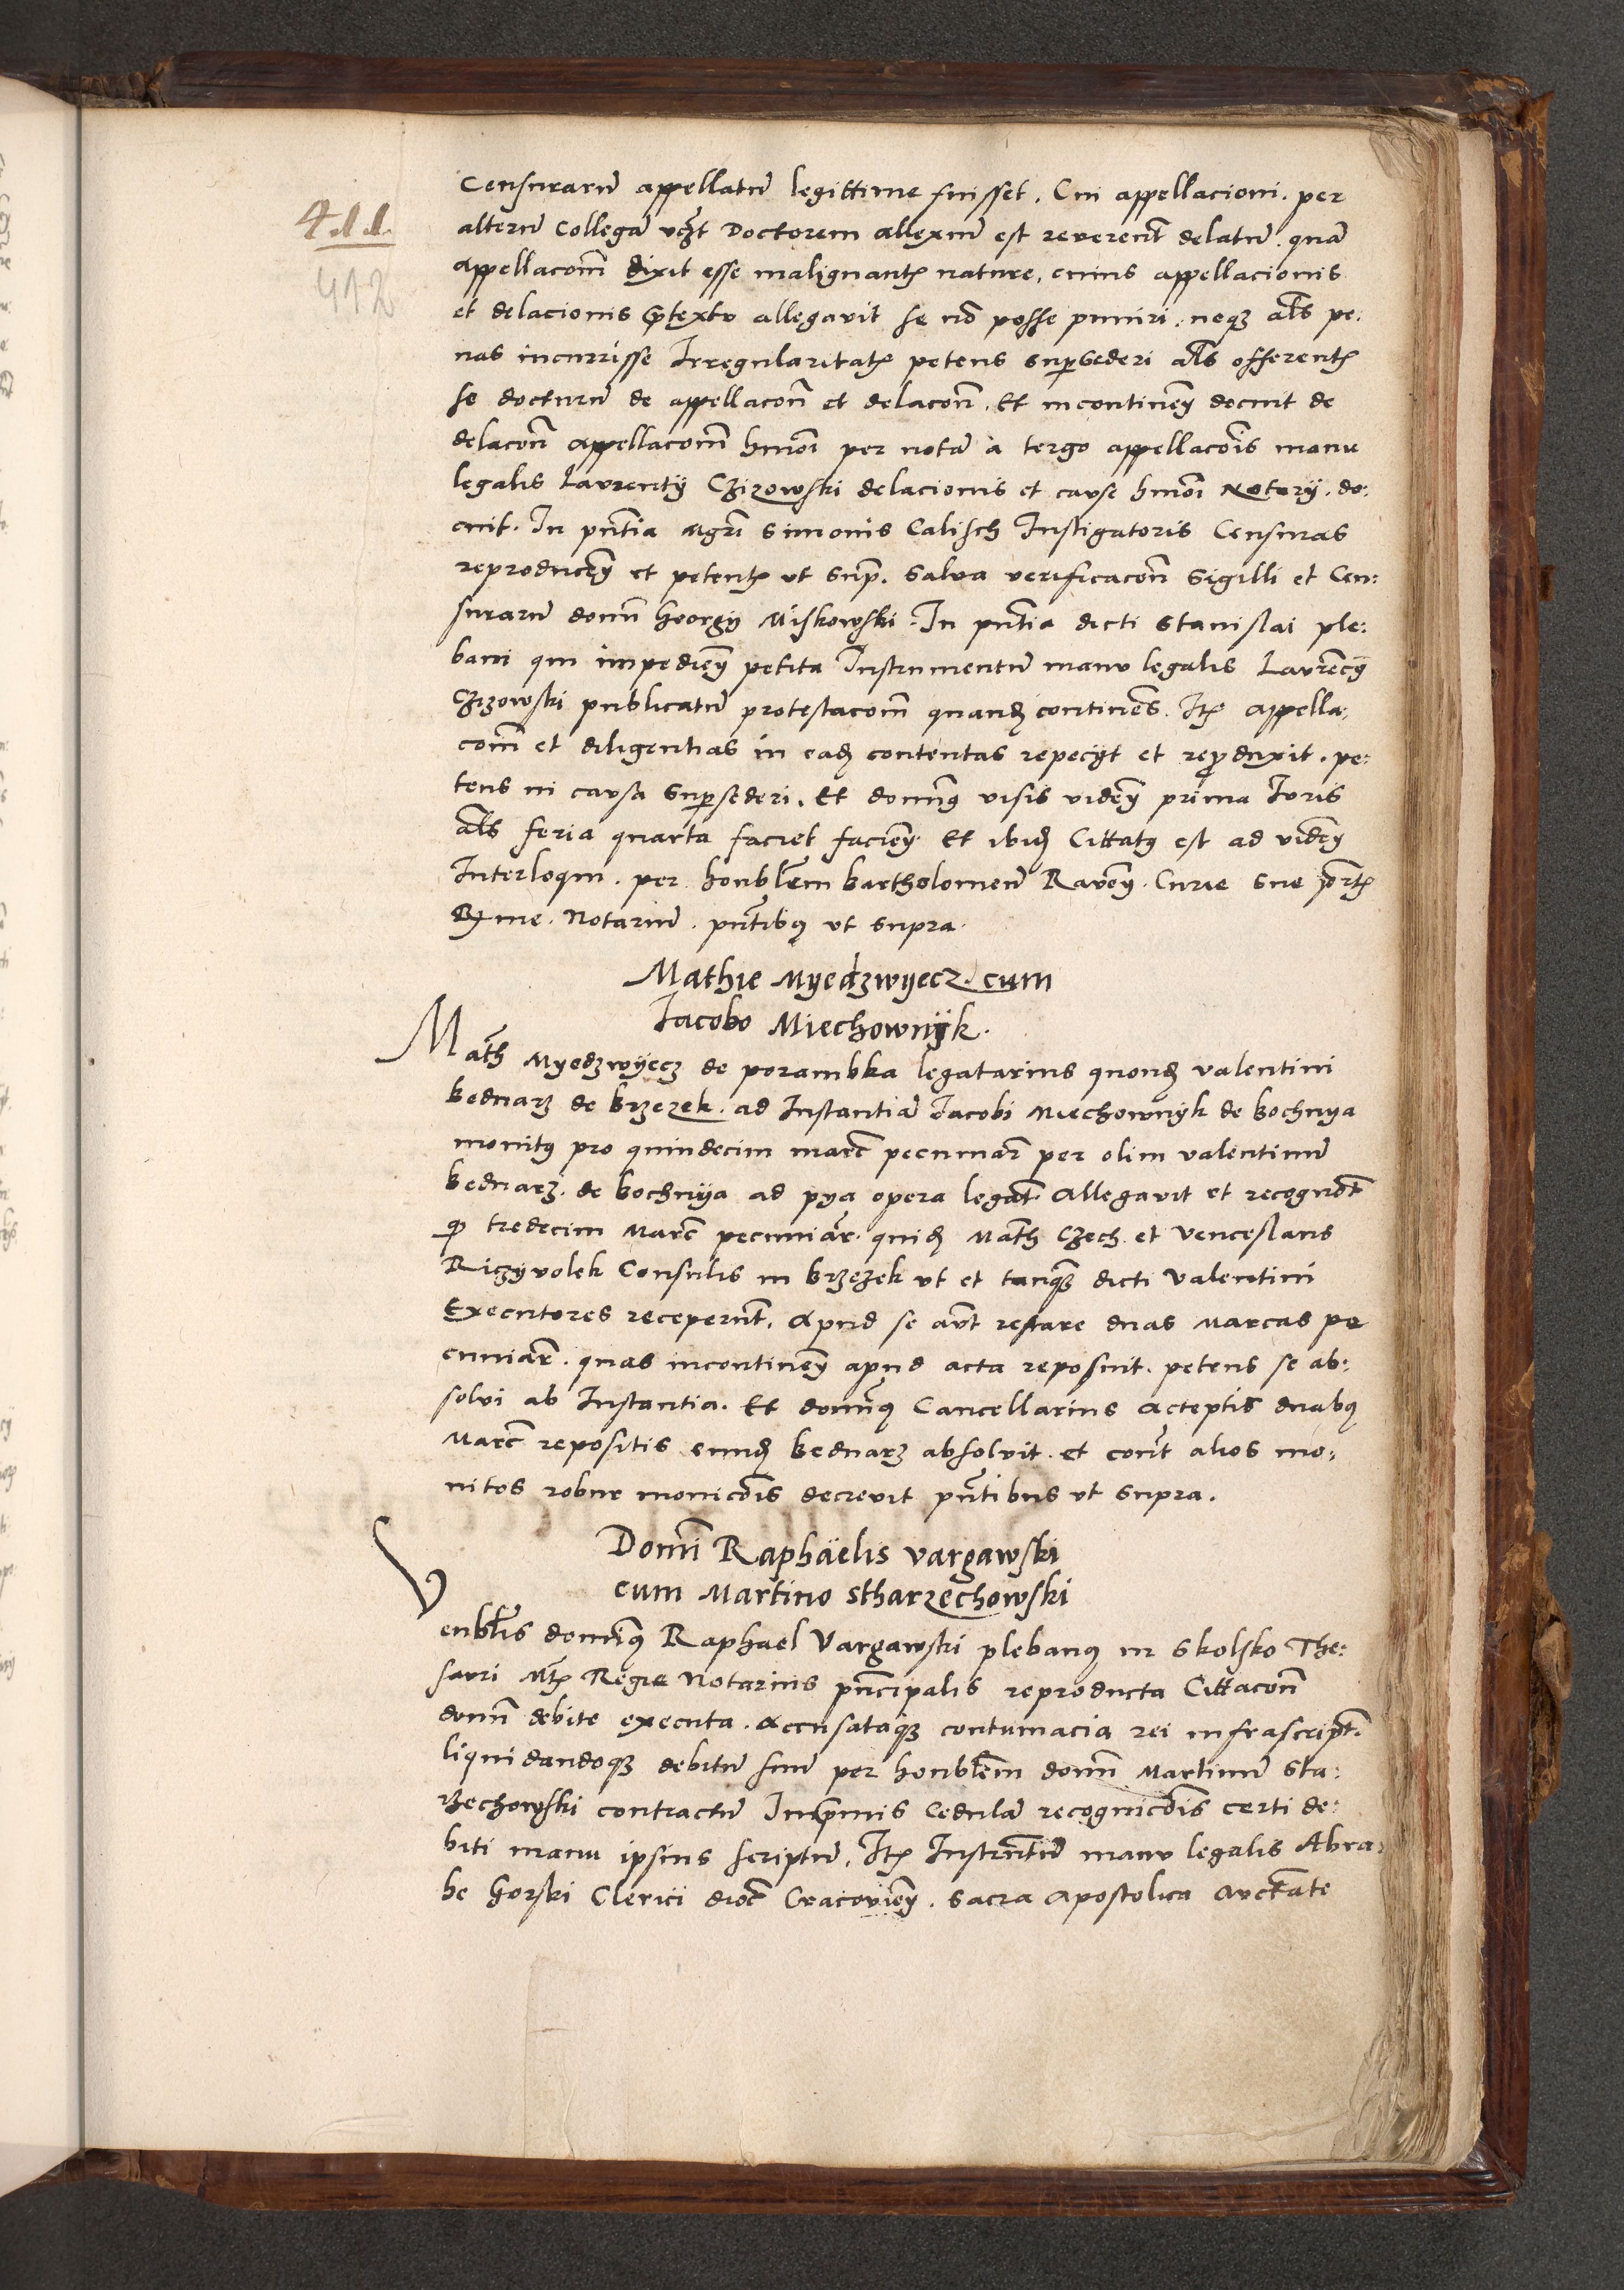 411
412
Censurarũ appellatũ legittime fuisset. Cui appellacioni. per
alterũ Collegã vcȝt Doctorem allexiũ est reverent̃ delatũ. quã
appellacom̃ dixit esse malignantȝ nature, cuius appellacionis
et delacionis p̃textu allegavit se nõ posse puniri. neqȝ al̃s pe:
nas incurrisse Irregularitatȝ petens sup̱sederi al̃s offerentȝ
se docturũ de appellacoñ et delacoñ. Et incontineñ docuit de
delacoñ appellacom̃ hmõi per notã a tergo appellacõis manu
legalis Laurentij Czizowski delacionis et cause hmõi Notarij. do:
cuit. In pñtia Mgr̃i Simonis Calisch Instigatoris Censuras
reproduceñ et petentȝ ut sup̃. salva verificacoñ sigilli et Cen:
surarũ domñ Georgij Miskowski. In pñtia dicti Stanislai ple:
bani qui impedieñ petita Instrumentũ manu legalis Laurẽcij
Czizowski publicatũ protestacom̃ quandȝ continẽs. Itȝ appella:
com̃ et diligentias in eadȝ contentas repecijt et rep̱duxit. pe:
tens in causa sup̱sederi. Et domñ9 visis videñ prima Iuris
al̃s feria quarta faciet facieñ. Et ibidȝ Cittat9 est ad videñ
Interloqui. per honbl̃em Bartholomeũ Raveñ. Curie sue
me. Notariũ. pñtib9 ut supra.
Mathie Myedzwyecz. cum
Iacobo Miechownÿk.
Mat̃h Myedzwyecz de porambka legatarius quondȝ valentini
Bednarz de Brzezek. ad Instantiã Iacobi Miechownÿk de Bochnya
monit9 pro quindecim marc̃ pecuniar̃ per olim valentinũ
Bednarz. de Bochnya ad pya opera legat̃. Allegavit et recognõt
q̱ tredecim Marc̃ pecuniar̃. quidȝ Mat̃h Czech et Venceslaus
Riczyvolek Consulis in Brzezek ut et tanq̃ȝ dicti Valentini
Executores receperũt. Apud se aũt restare duas Marcas pe
cuniar̃. quas incontineñ apud acta reposuit. petens se ab:
solvi ab Instantia. Et domñ9 Cancellarius acceptis duab9
Marc̃ repositis eundȝ Bednarz absolvit. et cont̃ alios mo:
nitos robur monicõis decrevit pñtibus ut supra.
Domñi Raphaëlis Vargawski
cum Martino Stharzechowski
Venbl̃is domñ9 Raphael Vargawski pleban9 in Skolsko The:
sauri Mtȝ Regie Notarius pñcipalis reproducta Cittacoñ
domñ debite executa. Accusataq̃ȝ contumacia rei infrascript̃.
liquidandoqȝ debitũ suũ per honbl̃em domñ Martinũ Sta:
rzechowski contractũ Inp̃mis Cedulã recognicõis certi de:
biti manu ipsius scriptũ. Itȝ Instrũtũ manu legalis Abra:
he Gorski Clerici dioc̃ Cracovieñ. sacra Apostolica auctate